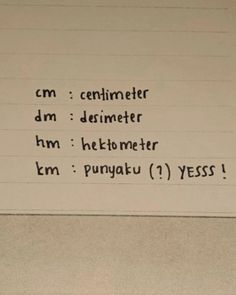 cm : centimeter
dm : desimeter
hm : hektometer
km : punyaku (?) YESSS !